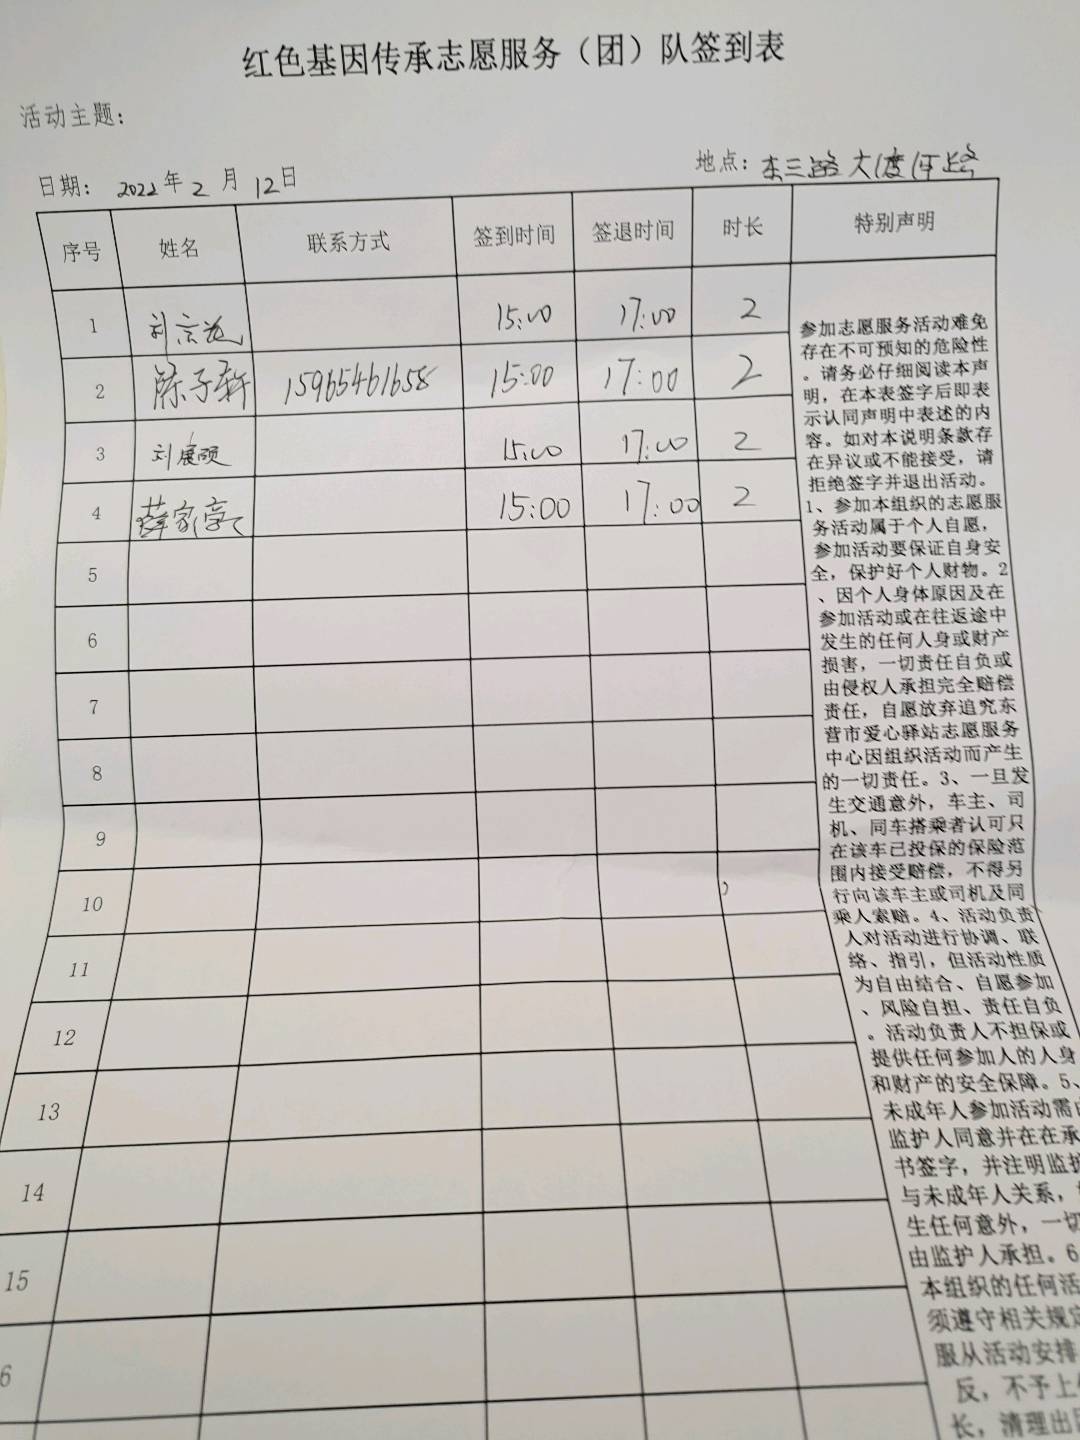 红色基因传承志愿服务（团）队签到表
活动主题：
日期： 2022年 2 月 12日
地点：东三路大渡河路
序号 姓名 联系方式 签到时间 签退时间 时长 特别声明
1 15:00 17:00 2
2 陈子轩 15965461658 15:00 17:00 2
3 刘展硕 15:00 17:00 2
4 薛家亮 15:00 17:00 2
5
6
7
8
9
10
11
12
13
14
15
6
参加志愿服务活动难免
存在不可预知的危险性
。请务必仔细阅读本声
明，在本表签字后即表
示认同声明中表述的内
容。如对本说明条款存
在异议或不能接受，请
拒绝签字并退出活动。
1、参加本组织的志愿服
务活动属于个人自愿，
参加活动要保证自身安
全，保护好个人财物。2
、因个人身体原因及在
参加活动或在往返途中
发生的任何人身或财产
损害，一切责任自负或
由侵权人承担完全赔偿
责任，自愿放弃追究东
营市爱心驿站志愿服务
中心因组织活动而产生
的一切责任。3、一旦发
生交通意外，车主、司
机、同车搭乘者认可只
在该车已投保的保险范
围内接受赔偿，不得另
行向该车主或司机及同
乘人索赔。4、活动负责
人对活动进行协调、联
络、指引，但活动性质
为自由结合、自愿参加
、风险自担、责任自负
。活动负责人不担保或
提供任何参加人的人身
和财产的安全保障。5、
未成年人参加活动需由
监护人同意并在在承
书签字，并注明监护
与未成年人关系，
生任何意外，一切
由监护人承担。6
本组织的任何活
须遵守相关规定
服从活动安排
反，不予上
长，清理出